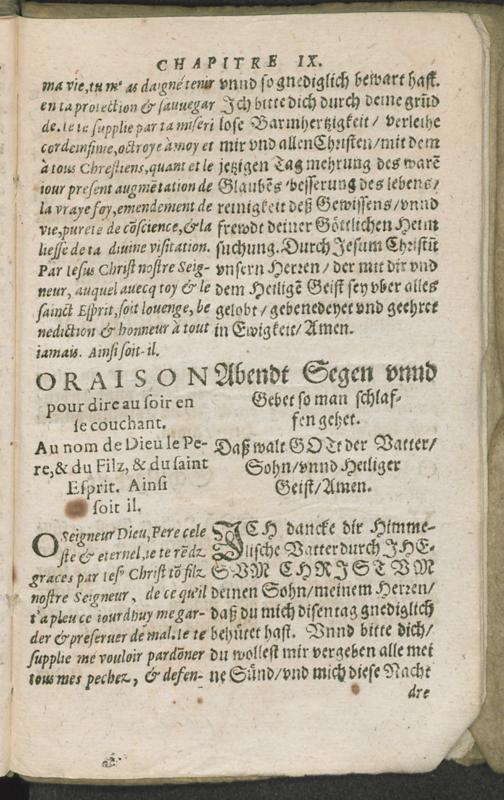 CHAPITRE IX.
ma vie, tu m' as daigné tenir
en ta protection & sauvegar
de. Ie te supplie par ta miseri
corde infinie, octroye à moy et
à tous Chrestiens, quant et le
iour present augmẽtation de
la vraye foy, emendement de
vie, pureté de cõscience, & la
liesse de ta divine visitation.
Par Iesus Christ nostre Seig-
neur, auquel avecq toy & le
sainct Esprit, soit louenge, be
nediction & honneur à tout
iamais. Ainsi soit-il.
vnnd so gnediglich bewart hast.
Ich bitte dich durch deine grũd
lose Barmhertzigkeit / verleihe
mir vnd allen Christen / mit dem
jetzigen Tag mehrung des warẽ
Glaubẽs / besserung des lebens /
reinigkeit deß Gewissens / vnnd
frewdt deiner Göttlichen Heim
suchung. Durch Jesum Christũ
vnsern Herren / der mit dir vnd
dem Heiligẽ Geist sey vber alles
gelobt / gebenedeyet vnd geehret
in Ewigkeit / Amen.
ORAISON
pour dire au soir en
se couchant.
Au nom de Dieu le Pe-
re, & du Filz, & du saint
Esprit. Ainsi
soit il.
Abendt Segen vnnd
Gebet so man schlaf-
fen gehet.
Daß walt GOTt der Vatter /
Sohn / vnnd Heiliger
Geist / Amen.
O Seigneur Dieu, Pere cele
ste & eternel, ie te rẽdz
graces par Iesº Christ tõ filz
nostre Seigneur, de ce qu'il
t'a pleu ce iourdhuy me gar-
der & preserver de mal. Ie te
supplie me vouloir pardõner
tous mes pechez, & defen-
ICH dancke dir Himme-
lische Vatter durch JHE-
SVM CHRISTVM
deinen Sohn / meinem Herren /
daß du mich disen tag gnediglich
behütet hast. Vnnd bitte dich /
du wollest mir vergeben alle mei
ne Sünd / vnd mich diese Nacht
dre